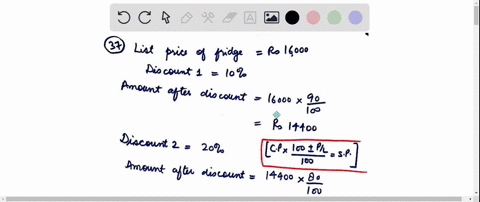 37 List price of fridge = Rs 16000
Discount 1 = 10%
Amount after discount = 16000 × 90/100
= Rs 14400
Discount 2 = 20% [C.P × (100 ± P/L)/100 = S.P.]
Amount after discount = 14400 × 80/100